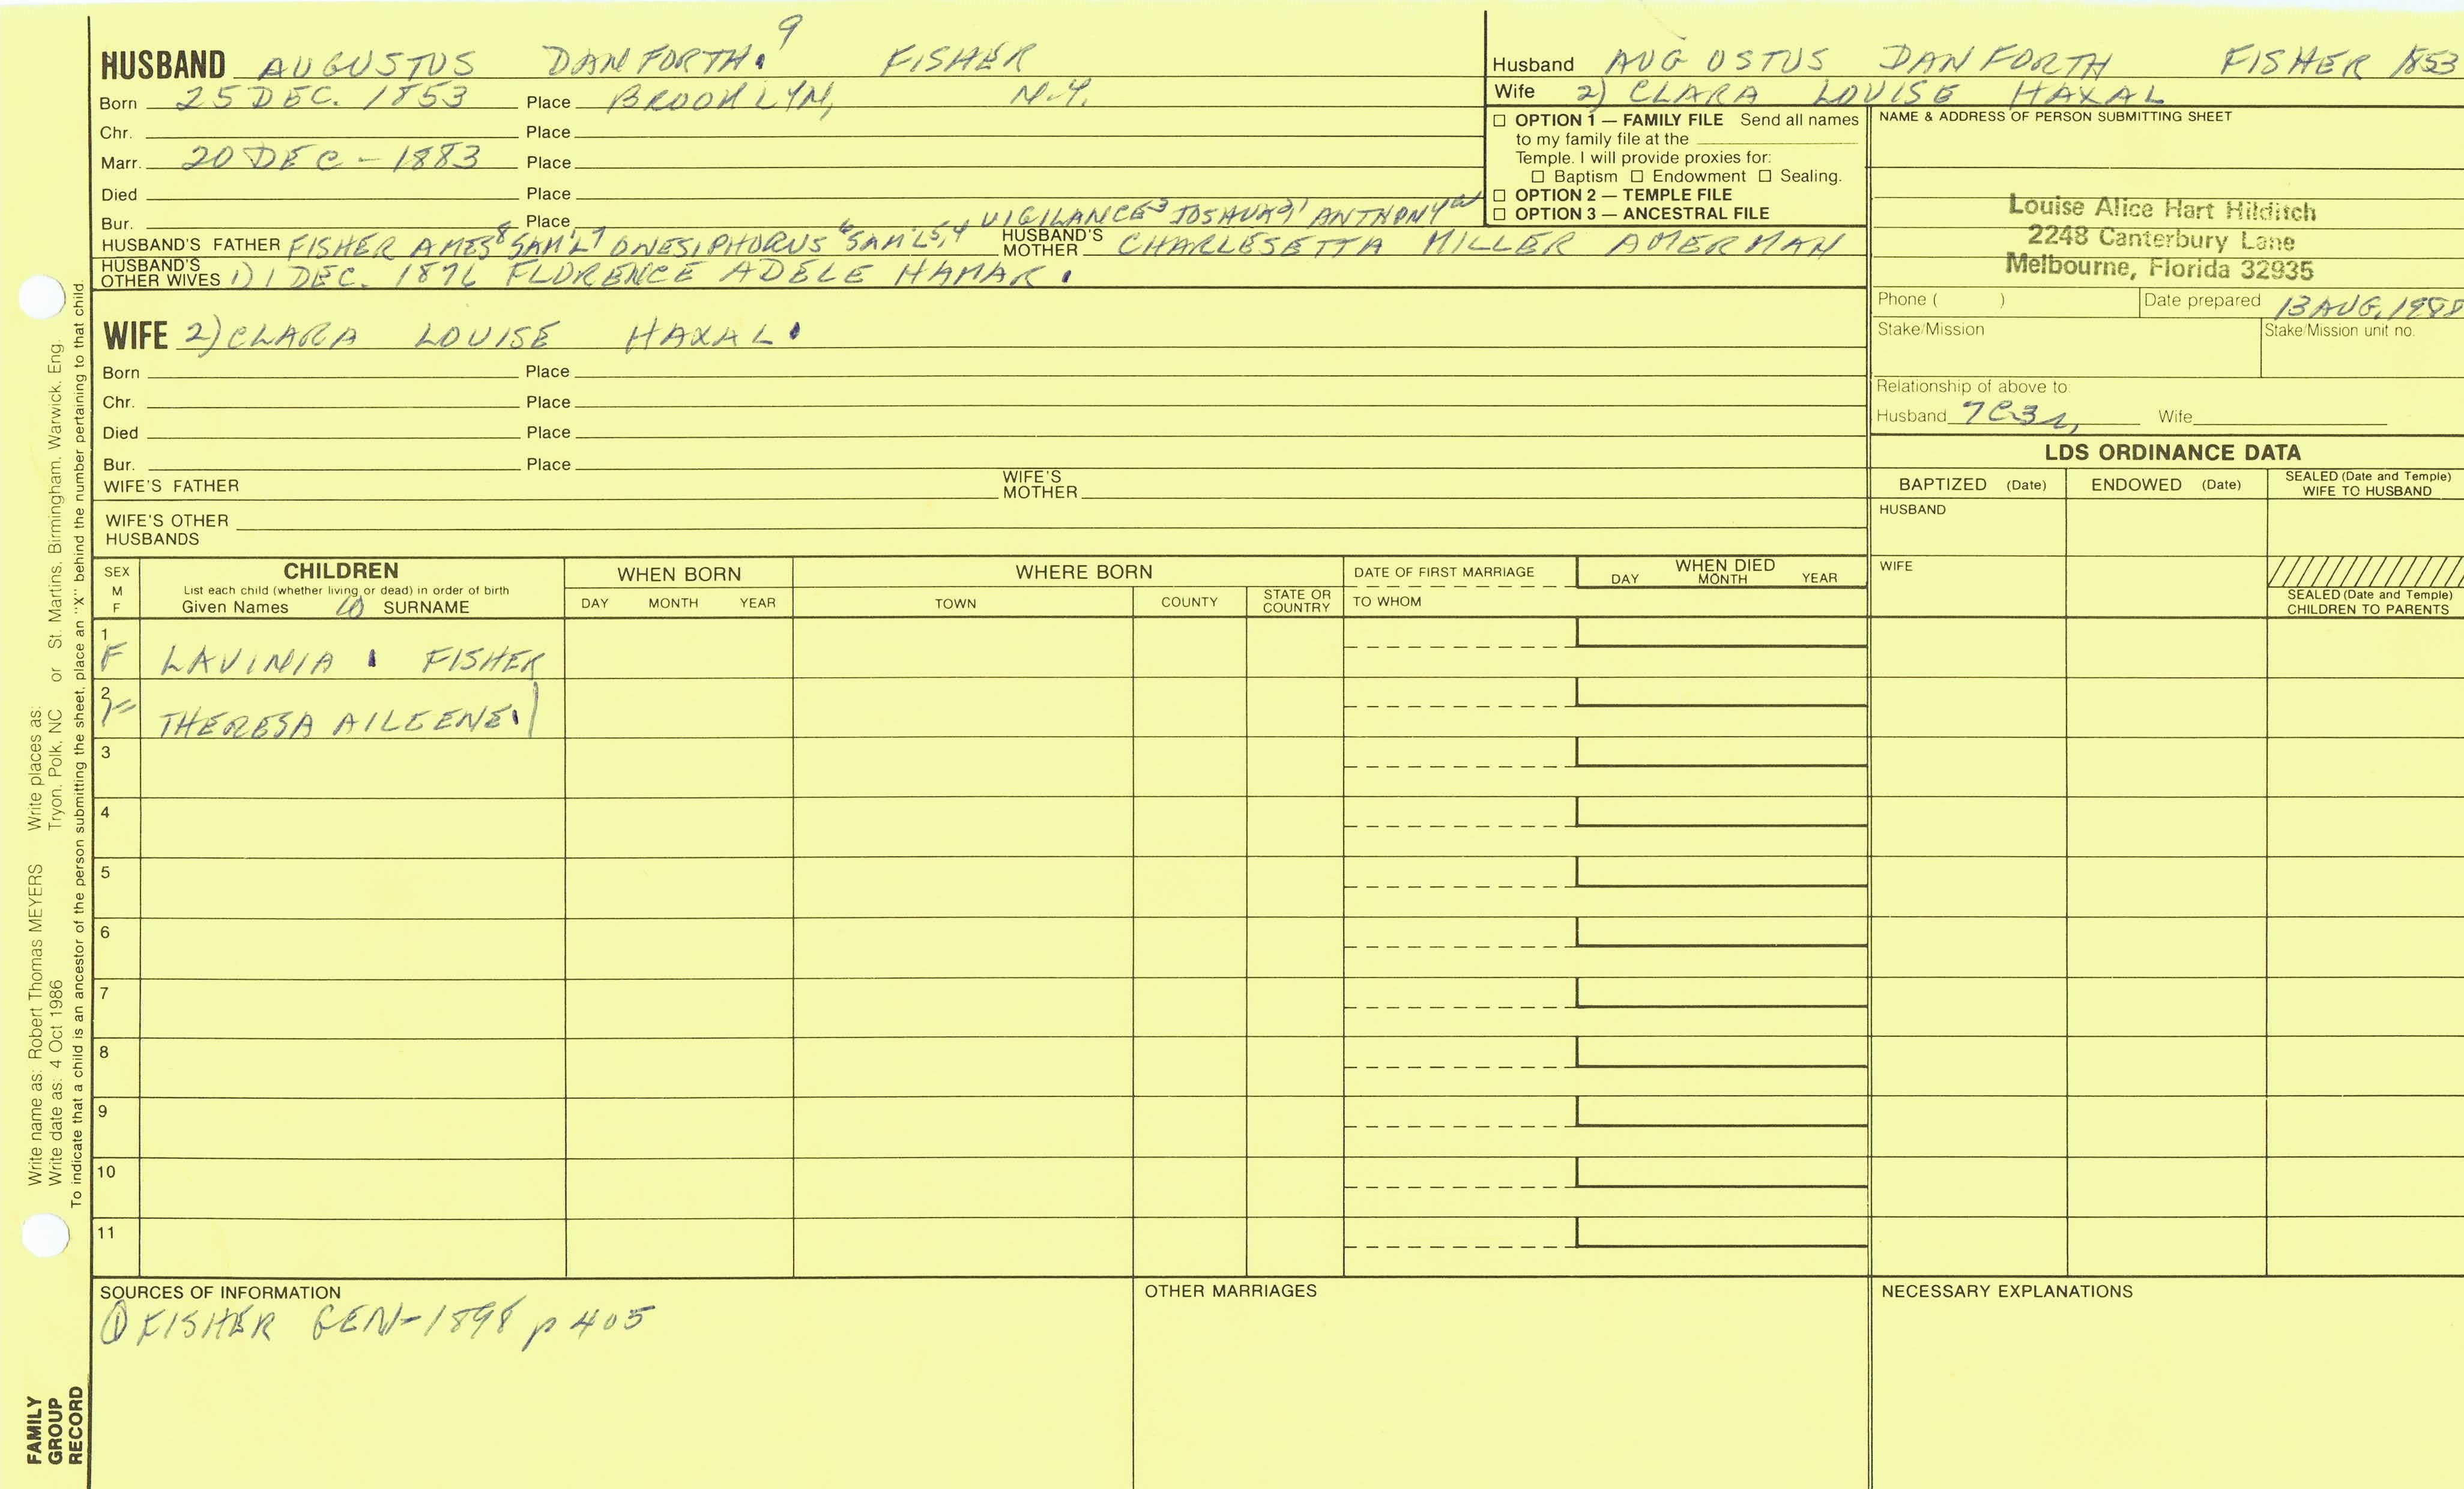 HUSBAND AUGUSTUS DANFORTH. 9 FISHER
Born 25 DEC. 1853 Place BROOKLYN, N.Y.
Chr. Place
Marr. 20 DEC - 1883 Place
Died Place
Bur. Place VIGILANCE 3 JOSHUA 2,1 ANTHONY
HUSBAND'S FATHER FISHER AMES 8 SAM'L 7 ONESIPHORUS 6 SAM'L 5,4 HUSBAND'S MOTHER CHARLESETTA MILLER AMERMAN
HUSBAND'S OTHER WIVES 1) 1 DEC. 1876 FLORENCE ADELE HAMAR.
WIFE 2) CLARA LOUISE HAXAL
Born Place
Chr. Place
Died Place
Bur. Place
WIFE'S FATHER WIFE'S MOTHER
WIFE'S OTHER HUSBANDS
Husband AUGUSTUS DANFORTH FISHER 1853
Wife 2) CLARA LOUISE HAXAL
☐ OPTION 1 — FAMILY FILE Send all names
to my family file at the
Temple. I will provide proxies for:
☐ Baptism ☐ Endowment ☐ Sealing.
☐ OPTION 2 — TEMPLE FILE
☐ OPTION 3 — ANCESTRAL FILE
NAME & ADDRESS OF PERSON SUBMITTING SHEET
Louise Alice Hart Hilditch
2248 Canterbury Lane
Melbourne, Florida 32935
Phone ( ) Date prepared 13 AUG, 1988
Stake/Mission Stake/Mission unit no.
Relationship of above to
Husband 7C3r, Wife
LDS ORDINANCE DATA
BAPTIZED (Date) ENDOWED (Date) SEALED (Date and Temple) WIFE TO HUSBAND
HUSBAND
WIFE
SEALED (Date and Temple)
CHILDREN TO PARENTS
SEX M F
CHILDREN
List each child (whether living or dead) in order of birth
Given Names 10 SURNAME
WHEN BORN
DAY MONTH YEAR
WHERE BORN
TOWN COUNTY STATE OR COUNTRY
DATE OF FIRST MARRIAGE
TO WHOM
WHEN DIED
DAY MONTH YEAR
1 F LAVINIA FISHER
2 F THERESA AILEENE
3
4
5
6
7
8
9
10
11
SOURCES OF INFORMATION
① FISHER GEN-1898 p 405
OTHER MARRIAGES
NECESSARY EXPLANATIONS
Write name as: Robert Thomas MEYERS Write places as: Tryon, Polk, NC or St. Martins, Birmingham, Warwick, Eng.
Write date as: 4 Oct 1986
To indicate that a child is an ancestor of the person submitting the sheet, place an "X" behind the number pertaining to that child.
FAMILY
GROUP
RECORD